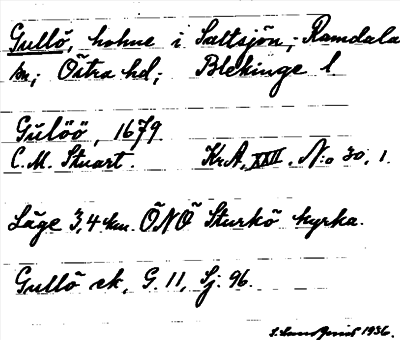 Gullö, holme i Saltsjön, Ramdala
sn; Östra hd; Blekinge l
Gulöö, 1679
C. M. Stuart. KrA, XXII, N:o 30, 1.
Läge 3,4 km. ÖNÖ Sturkö kyrka.
Gullö ek, G. 11, Sj. 96.
1936.